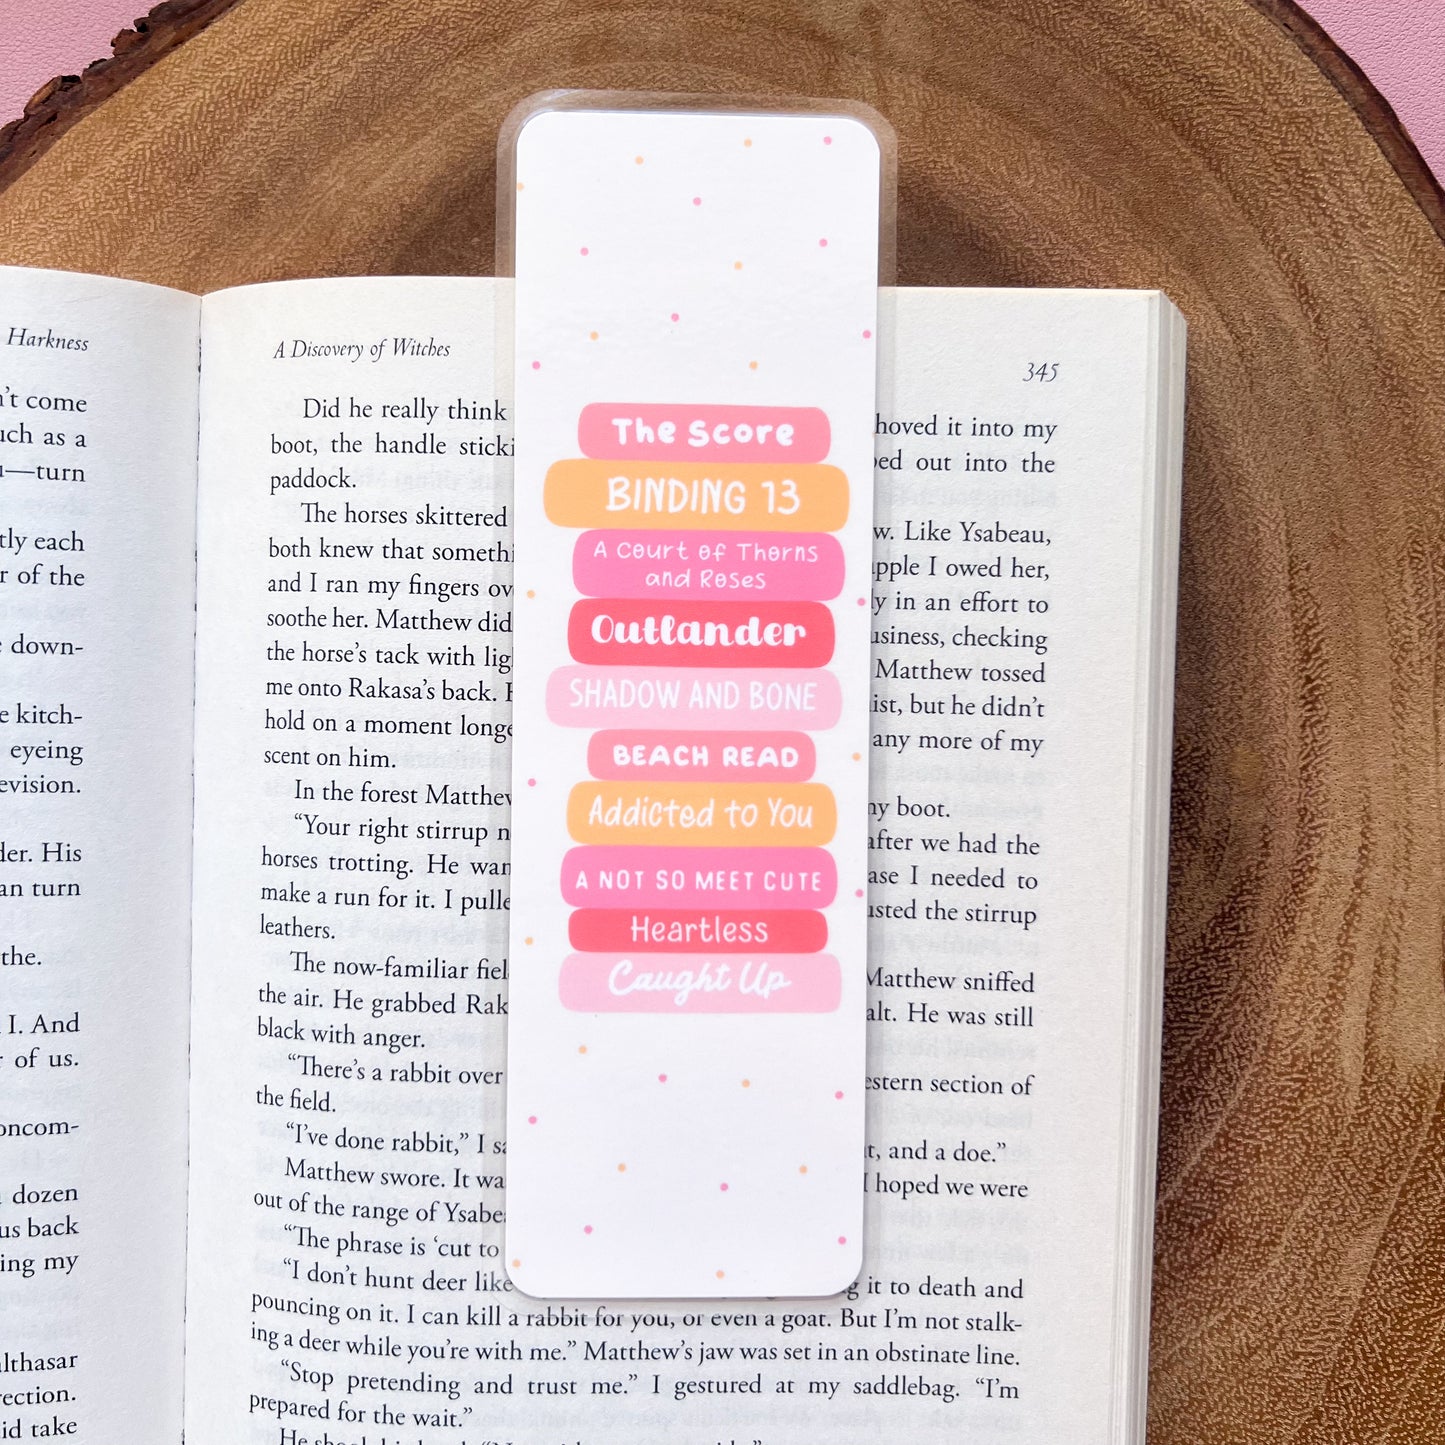 Harkness
come
as a
turn
each
of the
down-
kitch-
eyeing
His
turn
the.
I. And
of us.
dozen
back
my
take
A Discovery of Witches
345
Did he really think
hoved it into my
boot, the handle
out into the
paddock.
The horses skittered
Like Ysabeau,
both knew that
I owed her,
and I ran my fingers
in an effort to
soothe her. Matthew did
checking
the horse's tack with
Matthew tossed
me onto Rakasa's back.
but he didn't
hold on a moment
any more of my
scent on him.
In the forest
boot.
"Your right stirrup
after we had the
horses trotting. He
I needed to
make a run for it. I
the stirrup
leathers.
The now-familiar
Matthew sniffed
the air. He grabbed
He was still
black with anger.
"There's a rabbit over
section of
the field.
"I've done rabbit," I
and a doe."
Matthew swore. It
I hoped we were
out of the range of
"The phrase is 'cut to
"I don't hunt deer like
it to death and
pouncing on it. I can kill a rabbit for you, or even a goat. But I'm not stalk-
ing a deer while you're with me." Matthew's jaw was set in an obstinate line.
"Stop pretending and trust me." I gestured at my saddlebag. "I'm
prepared for the wait."
The Score
BINDING 13
A Court of Thorns
and Roses
Outlander
SHADOW AND BONE
BEACH READ
Addicted to You
A NOT SO MEET CUTE
Heartless
Caught Up